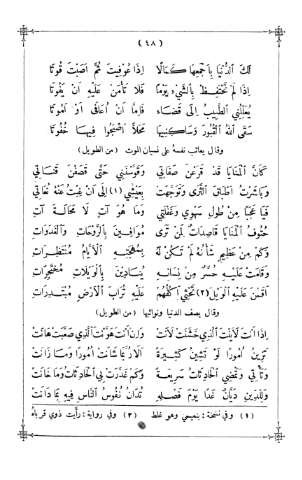 (٤٨)
لَكَ الدُّنْيَا بِأَجْمَعِهَا كَمَالًا إِذَا عُوفِيتَ ثُمَّ أَصَبْتَ قُوتَا
إِذَا لَمْ تَحْتَفِظْ بِالشَّيْءِ يَوْمًا فَلَا تَأْمَنْ عَلَيْهِ أَنْ يَفُوتَا
يُعَلِّلُنِي الطَّبِيبُ إِلَى قَضَاءٍ فَإِمَّا أَنْ أُعَافَى أَوْ أَمُوتَا
سَقَى اللهُ الْقُبُورَ وَسَاكِنِيهَا مَحَلًّا أَصْبَحُوا فِيهَا خُفُوتَا
وقال يعاتب نفسه على نسيان الموت (من الطويل)
كَأَنَّ الْمَنَايَا قَدْ قَرَعْنَ صَفَاتِي وَقَوَّسْنَنِي حَتَّى قَصَفْنَ قَنَاتِي
وَبَاشَرْتُ أَطْبَاقَ الثَّرَى وَتَوَجَّهَتْ بِنَعْيِي (١) إِلَى أَنْ غِبْتُ عَنْهُ نُعَاتِي
فَيَا عَجَبًا مِنْ طُولِ سَهْوِي وَغَفْلَتِي وَمَا هُوَ آتٍ لَا مَحَالَةَ آتِ
حُتُوفُ الْمَنَايَا قَاصِدَاتٌ لِمَنْ تَرَى مُوَافِينَ بِالرَّوْحَاتِ وَالْغَدَوَاتِ
وَكَمْ مِنْ عَظِيمٍ شَأْنُهُ لَمْ تَكُنْ لَهُ بِمُهْجَتِهِ الْأَيَّامُ مُنْتَظِرَاتِ
وَقَامَتْ عَلَيْهِ حُسَّرٌ مِنْ نِسَائِهِ يُنَادِينَ بِالْوَيْلَاتِ
(٢) عَلَيْهِ تُرَابَ الْأَرْضِ مُبْتَدِرَاتِ
وقال يصف الدنيا ونوائبها (من الطويل)
إِذَا أَنْتَ لَايَنْتَ الَّذِي خَشُنَتْ لَانَتْ وَإِنْ أَنْتَ هَوَّنْتَ الَّذِي صَعُبَتْ هَانَتْ
أُمُورًا كَثِيرَةً أَلَا رُبَّمَا شَانَتْ أُمُورًا وَمَا زَانَتْ
وَتَأْتِي وَتَمْضِي الْحَادِثَاتُ سَرِيعَةً وَكَمْ غَدَرَتْ بِي الْحَادِثَاتُ وَمَا خَانَتْ
وَلِلدِّينِ دَيَّانٌ غَدًا يَوْمَ فَصْلِهِ تُدَانُ نُفُوسُ النَّاسِ فِيهِ بِمَا دَانَتْ
(١) وفي نسخة: بنعيمي وهو غلط (٢) وفي رواية: رأيت ذوي قرباه